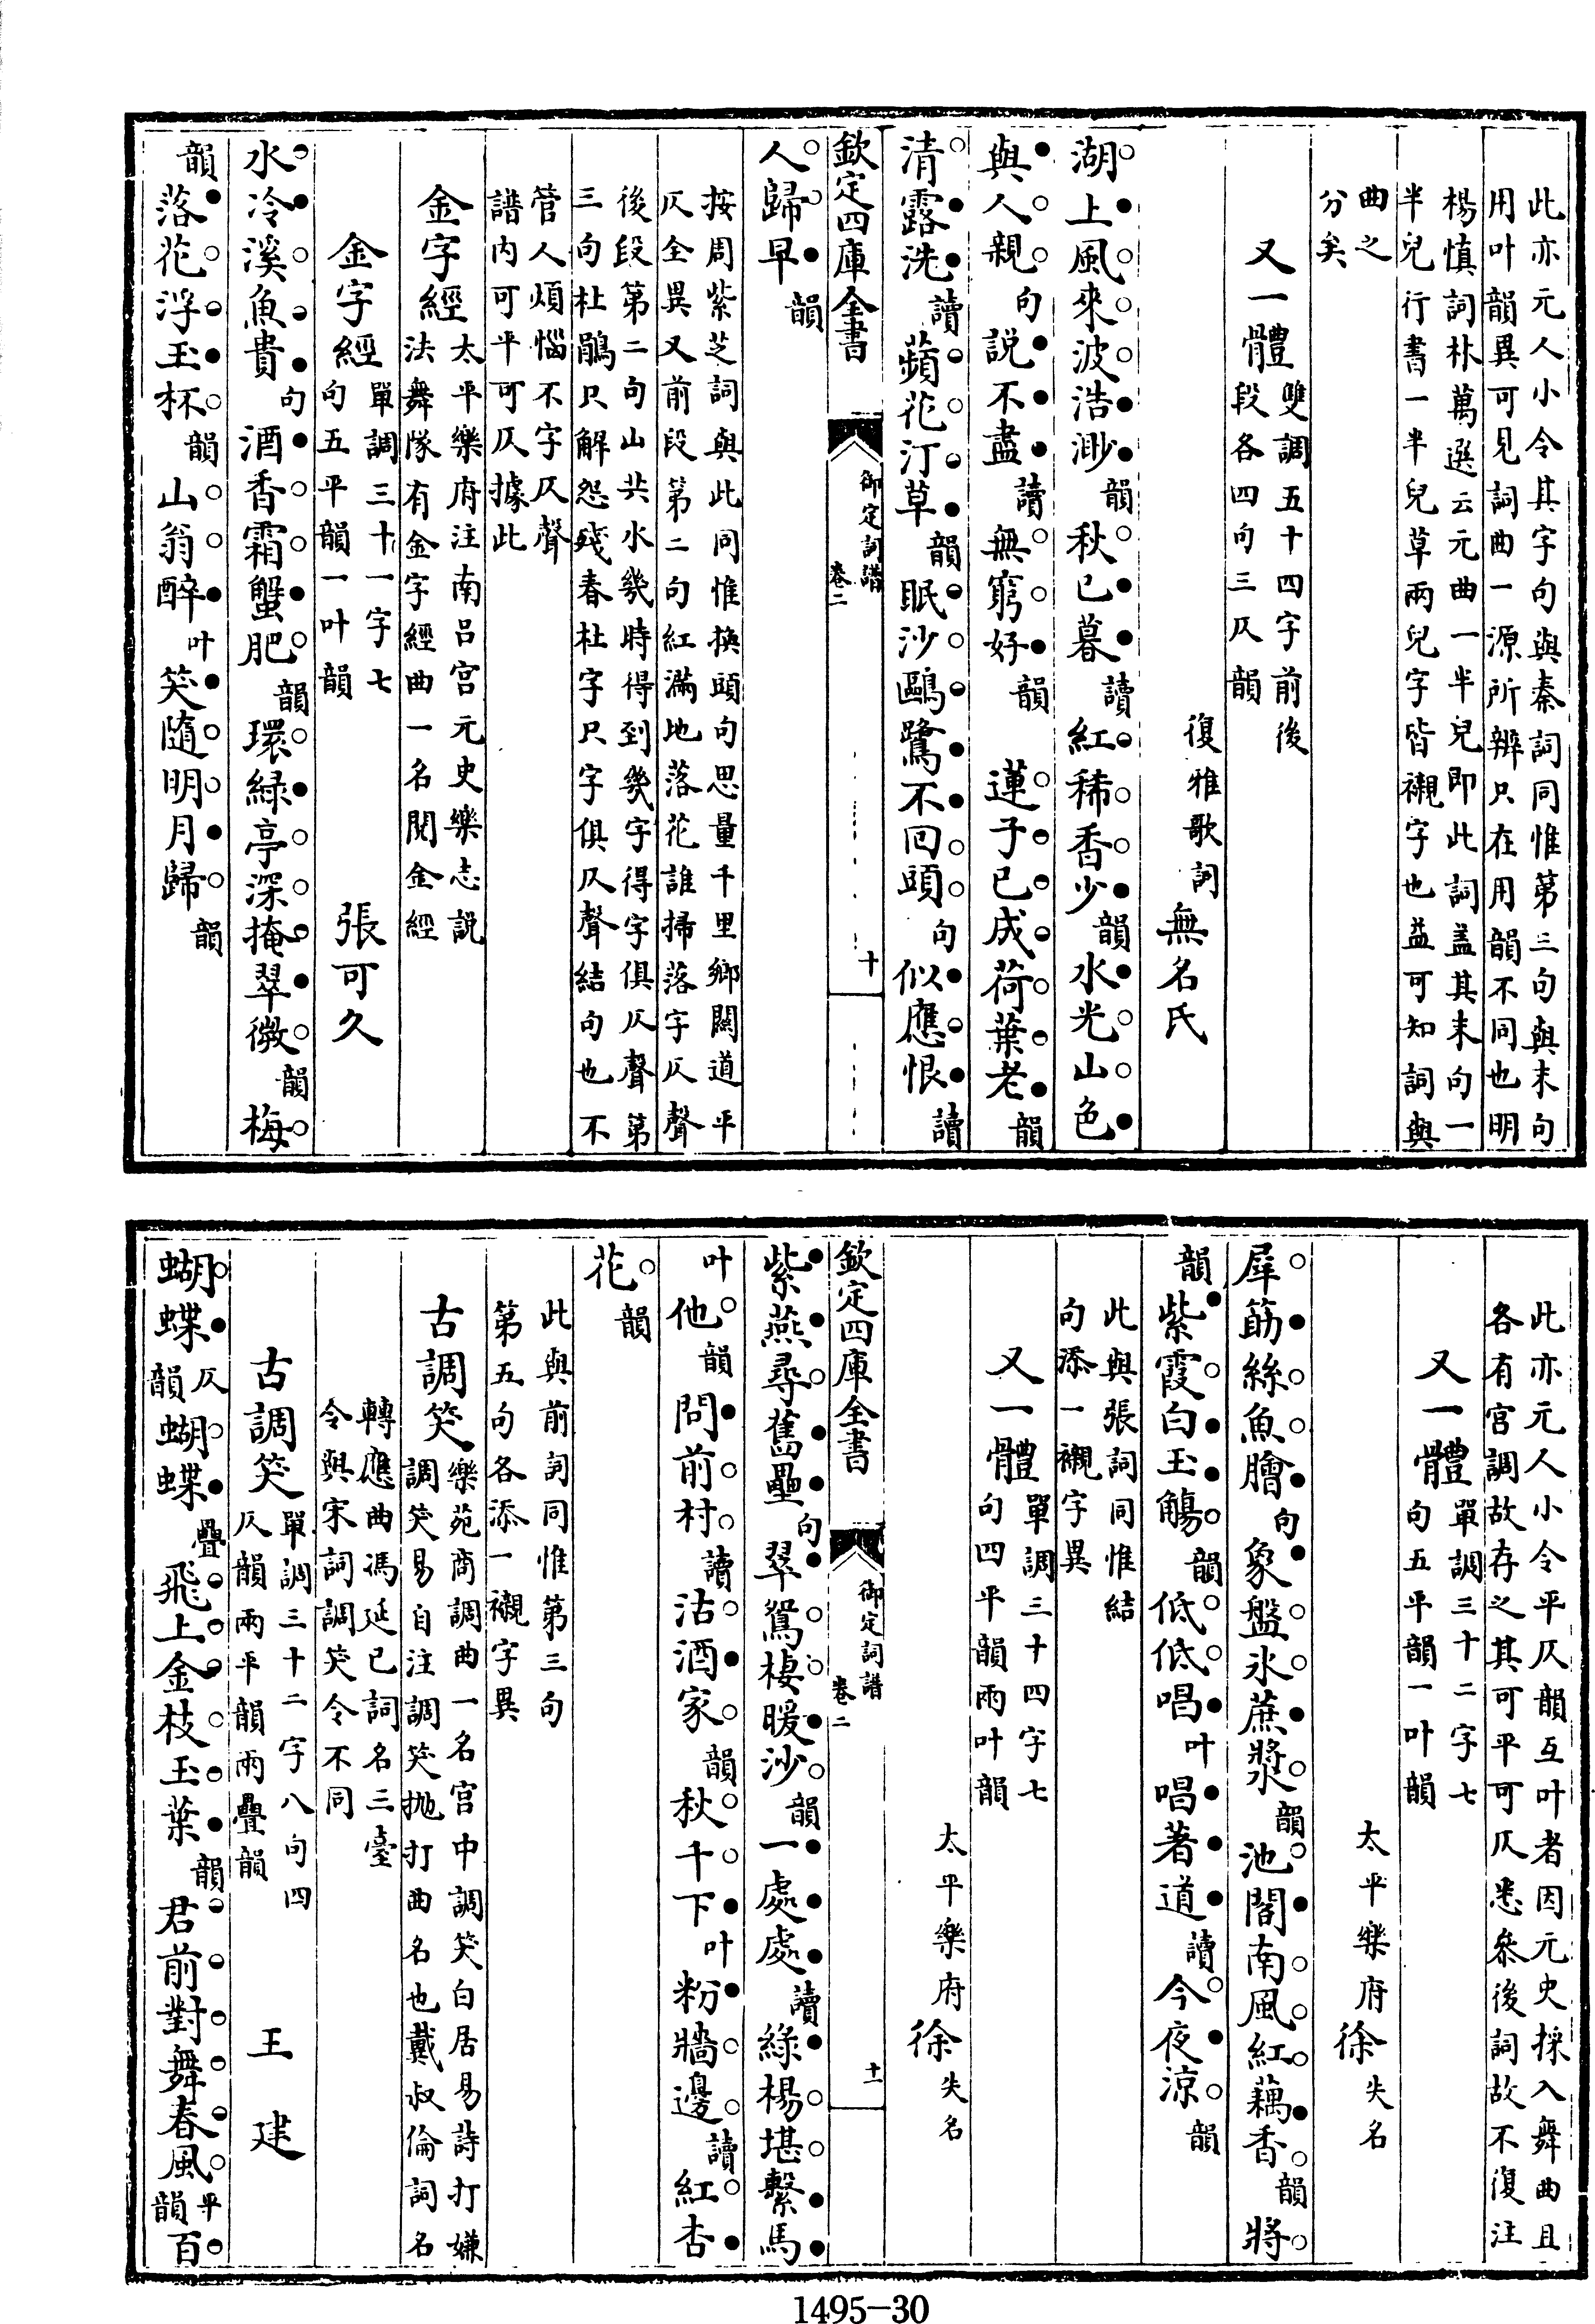 此亦元人小令其字句與秦詞同惟第三句與末句
用叶韻異可見詞曲一源所辨只在用韻不同也明
楊慎詞林萬選云元曲一半兒即此詞葢其末句一
半兒行書一半兒草兩兒字皆襯字也益可知詞與
曲之
分矣
又一體 雙調五十四字前後
段各四句三仄韻 復雅歌詞 無名氏
湖上風來波浩渺韻秋已暮讀紅稀香少韻水光山色
與人親句説不盡讀無窮好韻 蓮子已成荷葉老韻
清露洗讀蘋花汀草韻眠沙鷗鷺不回頭句似應恨讀
欽定四庫全書 御定詞譜 卷二 十
人歸早韻
按周紫芝詞與此同惟換頭句思量千里鄉關道平
仄全異又前段第二句紅滿地落花誰掃落字仄聲
後段第二句山共水幾時得到幾字得字俱仄聲第
三句杜鵑只解怨殘春杜字只字俱仄聲結句也不
管人煩惱不字仄聲
譜内可平可仄據此
金字經 太平樂府注南呂宮元史樂志説
法舞隊有金字經曲一名閲金經
金字經 單調三十一字七
句五平韻一叶韻 張可久
水冷溪魚貴句酒香霜蟹肥韻環緑亭深掩翠微韻梅
韻落花浮玉杯韻山翁醉叶笑隨明月歸韻
此亦元人小令平仄韻互叶者因元史採入舞曲且
各有宮調故存之其可平可仄悉叅後詞故不復注
又一體 單調三十二字七
句五平韻一叶韻 太平樂府 徐失名
犀筯絲魚膾句象盤氷蔗漿韻池閣南風紅藕香韻將
韻紫霞白玉觴韻低低唱叶唱著道讀今夜涼韻
此與張詞同惟結
句添一襯字異
又一體 單調三十四字七
句四平韻兩叶韻 太平樂府 徐失名
欽定四庫全書 御定詞譜 卷二 十一
紫燕尋舊壘句翠鴛棲暖沙韻一處處讀綠楊堪繫馬
叶他韻問前村讀沽酒家韻秋千下叶粉牆邊讀紅杏
花韻
此與前詞同惟第三句
第五句各添一襯字異
古調笑 樂苑商調曲一名宮中調笑白居易詩打嫌
調笑易自注調笑抛打曲名也戴叔倫詞名
轉應曲馮延巳詞名三臺
令與宋詞調笑令不同
古調笑 單調三十二字八句四
仄韻兩平韻兩疊韻 王建
蝴蝶仄韻蝴蝶疊飛上金枝玉葉韻君前對舞春風平韻百
1495-30